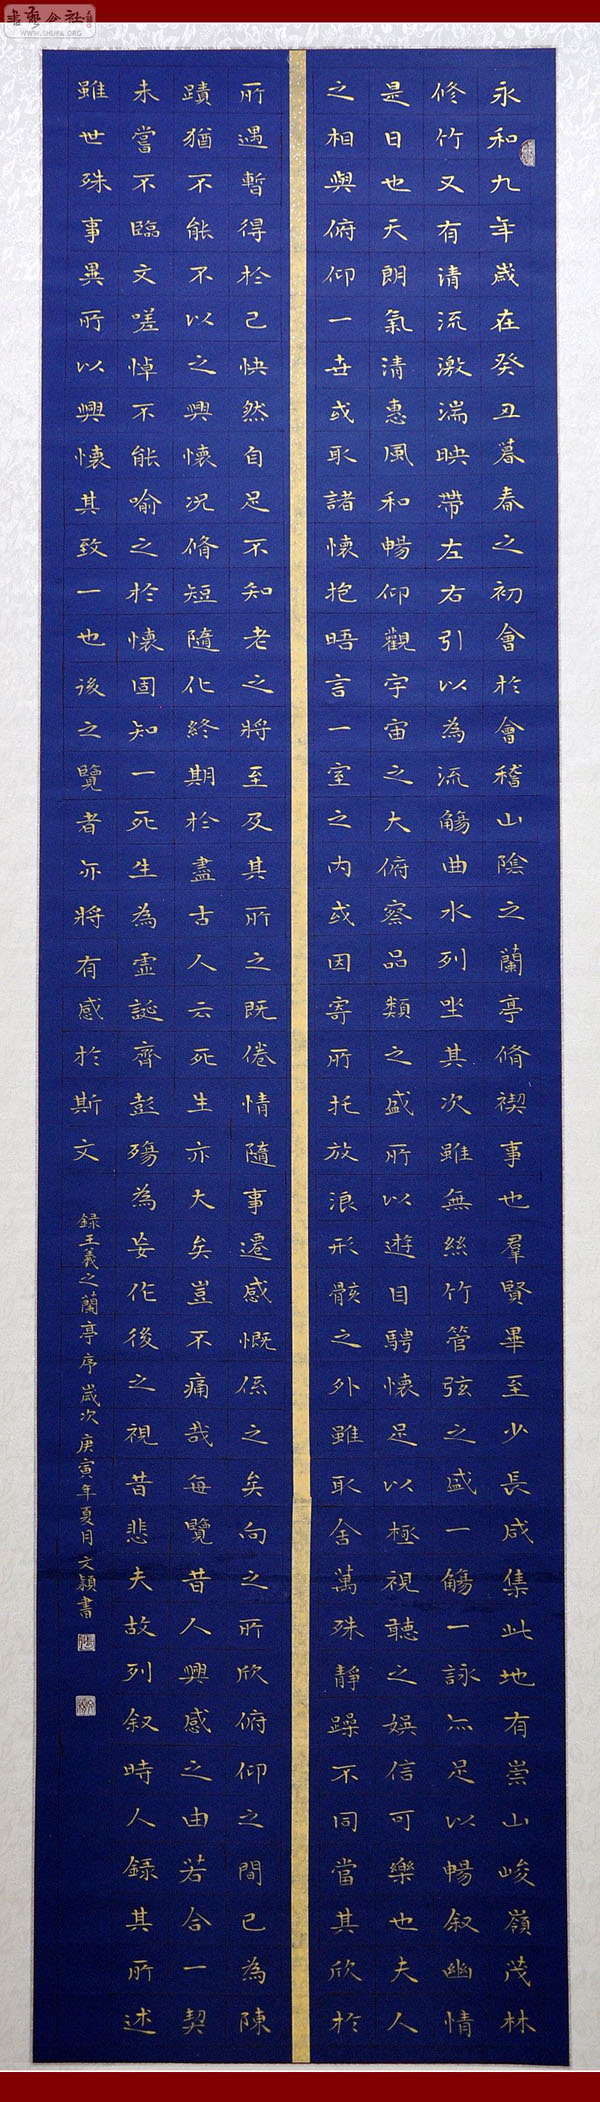 永和九年歲在癸丑暮春之初會於會稽山陰之蘭亭脩禊事也羣賢畢至少長咸集此地有崇山峻嶺茂林
修竹又有清流激湍映帶左右引以為流觴曲水列坐其次雖無絲竹管弦之盛一觴一詠亦足以暢叙幽情
是日也天朗氣清惠風和暢仰觀宇宙之大俯察品類之盛所以遊目騁懷足以極視聽之娛信可樂也夫人
之相與俯仰一世或取諸懷抱晤言一室之內或因寄所托放浪形骸之外雖取舍萬殊靜躁不同當其欣於
所遇暫得於己快然自足不知老之將至及其所之既倦情隨事遷感慨係之矣向之所欣俯仰之間已為陳
蹟猶不能不以之興懷况脩短隨化終期於盡古人云死生亦大矣豈不痛哉每覽昔人興感之由若合一契
未嘗不臨文嗟悼不能喻之於懷固知一死生為虛誕齊彭殤為妄作後之視昔悲夫故列叙時人錄其所述
雖世殊事異所以興懷其致一也後之覽者亦將有感於斯文
録王羲之蘭亭序歲次庚寅年夏月文穎書
WWW.SHUFA.ORG